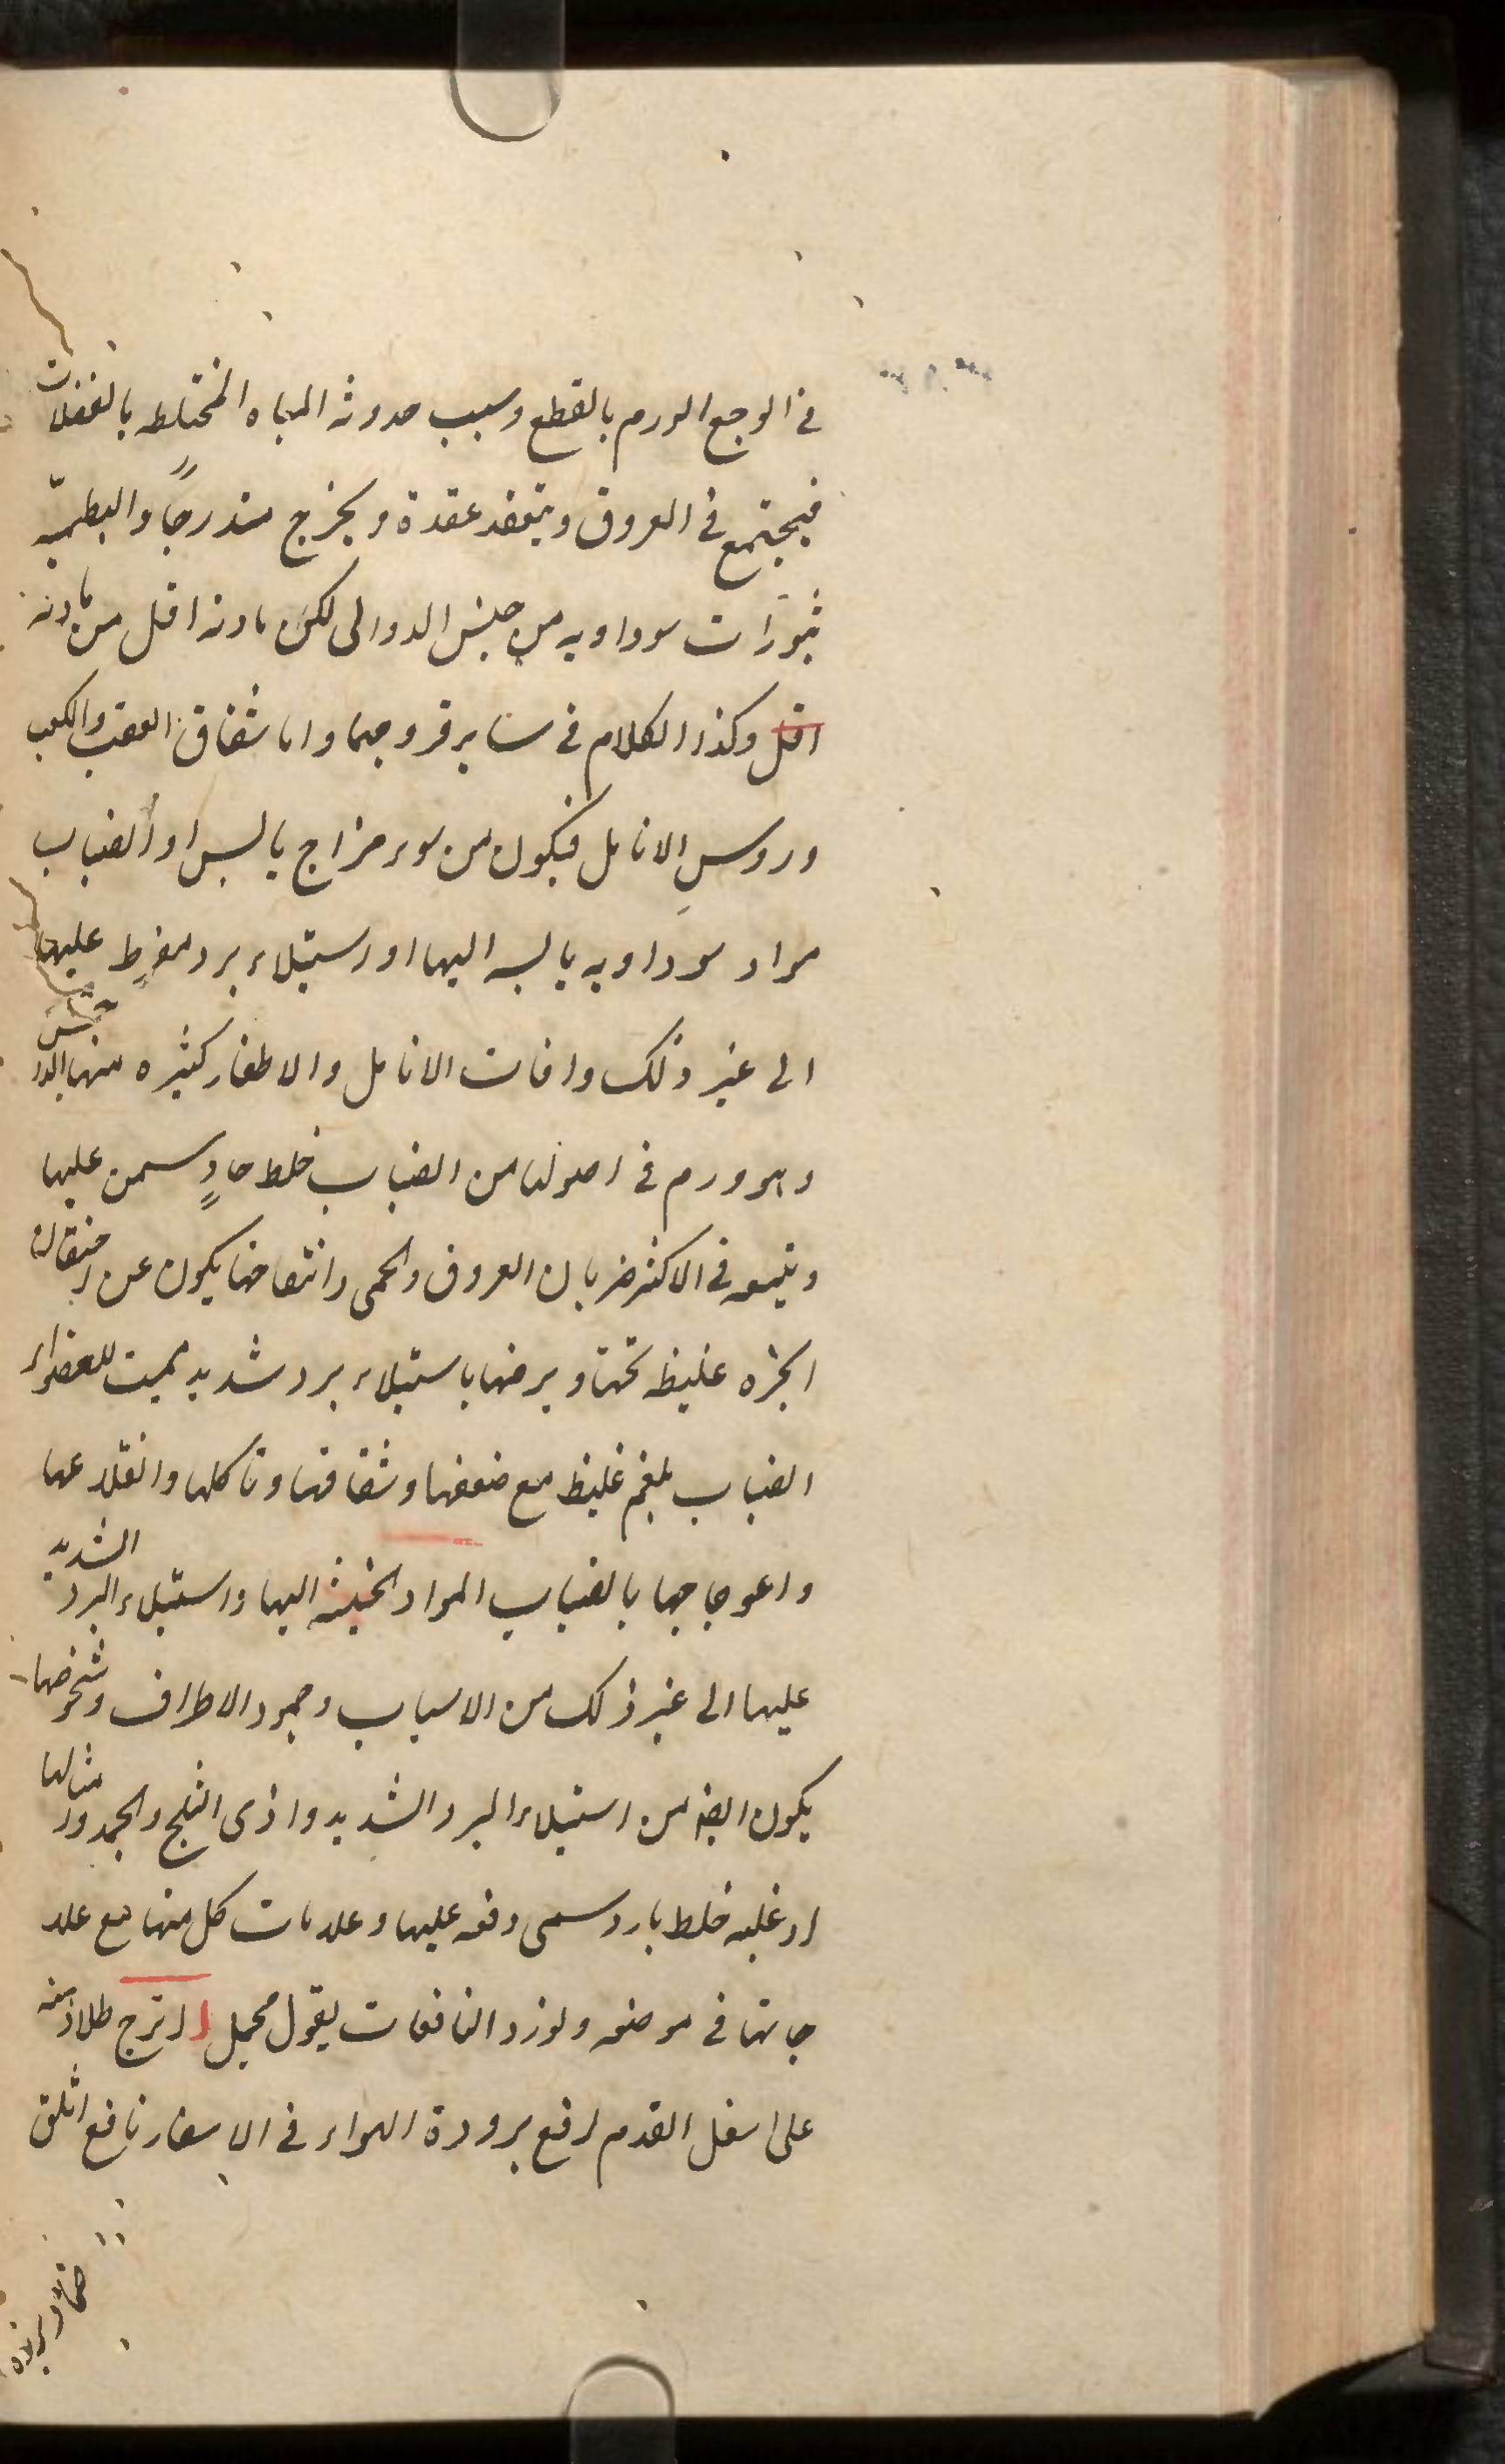 فى الوجع الورم بالقطع وسبب حدوثه المياه المختلطه بالفضلات
فيجتمع فى العروق وينعقد عقدة ويخرج متدرجًا والبطميّه
بثورات سوداويه من جنس الدوالى لكن مادته اقل من مادته
اقل وكذا الكلام فى ساير قروحها واما شقاق العقب والكعب
وروس الانامل فيكون من سوء مزاج يابس او انصباب
مواد سوداويه يابسه اليها او استيلاء برد مفرط عليها
الى غير ذلك وافات الانامل والاظفار كثيره منها الداحس
وهو ورم فى اصولها من انصباب خلط حادٍ سمن عليها
ويتبعه فى الاكثر ضربان العروق والحمى وانتفاخها يكون عن احتقان
ابخره غليظه تحتها وبرصها باستيلاء برد شديد مميت للعضو او
انصباب بلغم غليظ مع ضعفها وشقاقها وتاكلها وانقلاعها
واعوجاجها بانصباب المواد الخبيثه اليها واستيلاء البرد الشديد
عليها الى غير ذلك من الاسباب وجمود الاطراف وشخوصها
يكون ايضا من استيلاء البرد الشديد واذى الثلج والجمد وامثالها
او غلبه خلط بارد سمى دفعه عليها وعلامات كل منها مع علا
جاتها فى موضعه ولنورد النافعات بقول مجمل اترج طلاؤ
على اسفل القدم لرفع برودة الهواء فى الاسفار نافع اثلق
ضماد